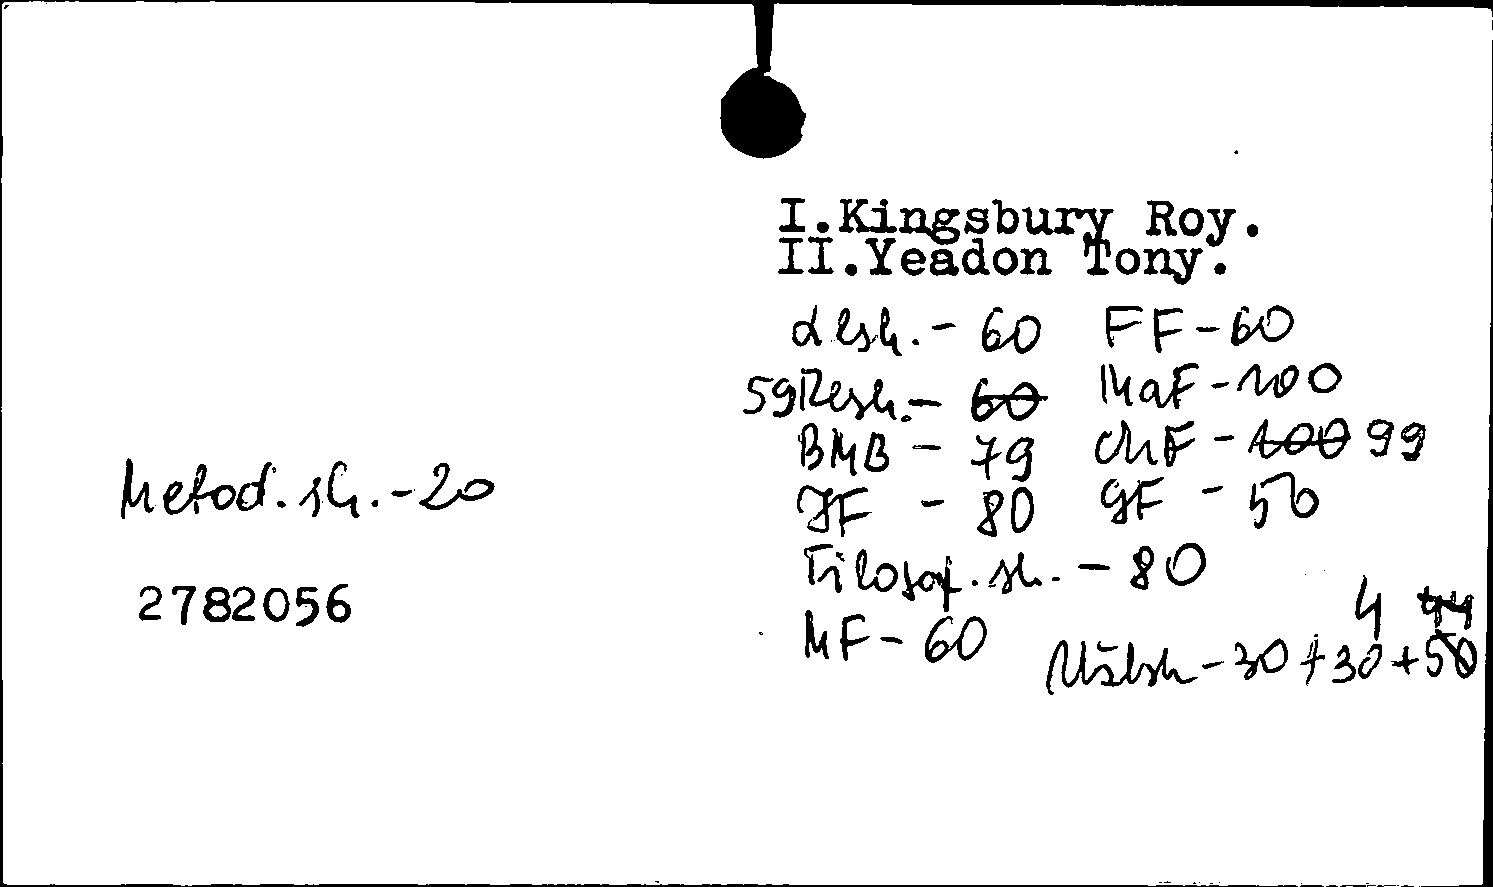 I.Kingsbury Roy.
II.Yeadon Tony.
Lksk. - 60 FF - 60
59 Resk. - 60 MaF - 100
BMB - 79 ChF - 100 99
JF - 80 GF - 50
Filosof. sk. - 80
MF - 60
4 44
Užsk - 30 + 30 + 50
Metod. sk. - 20
2782056